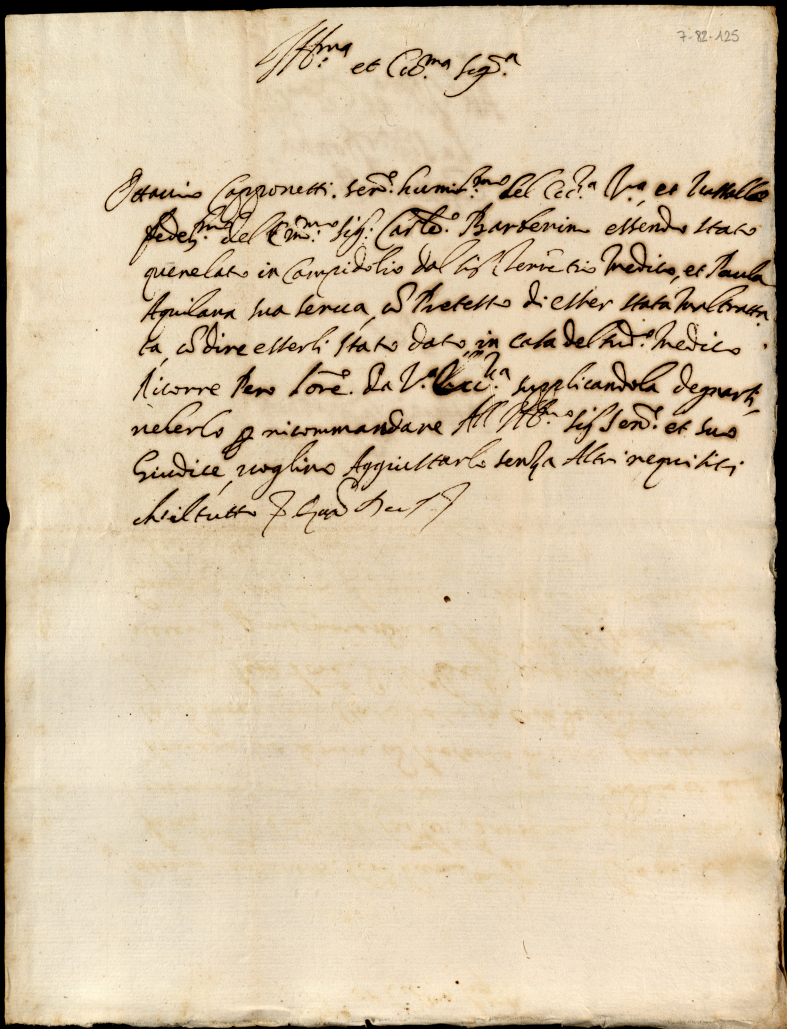 7-82-125
Ill:ma et Ecc:ma Sig:a
Ottavio Capponetti. ser:o humil:mo del Ecc:a V:a et Vassallo
fedel:mo del Em:mo Sig: Card:e Barberino essendo stato
querelato in Campidolio dal Medico, et Paula
Aquilana sua serva, cō Pretesto di esser stata Maltratta
ta, cō dire esserli stato dato in casa del sud:o Medico
Ricorre Pero l'ore. Da V:a Ecc:za supplicandola degnarsi
volerlo ricommandare All Ill:mo Sig Sen:e et suo
Giudice, voglino Aggiustarlo senza Altri requisiti
ch'il tutto